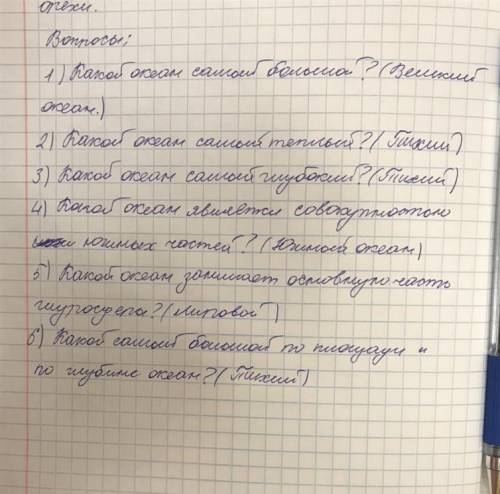 орехи.
Вопросы:
1) Какой океан самый большой? (Великий
океан.)
2) Какой океан самый теплый? (Тихий)
3) Какой океан самый глубокий? (Тихий)
4) Какой океан является совокупностью
южных частей? (Южный океан)
5) Какой океан занимает основную часть
гидросферы? (мировой)
6) Какой самый большой по площади и
по глубине океан? (Тихий)